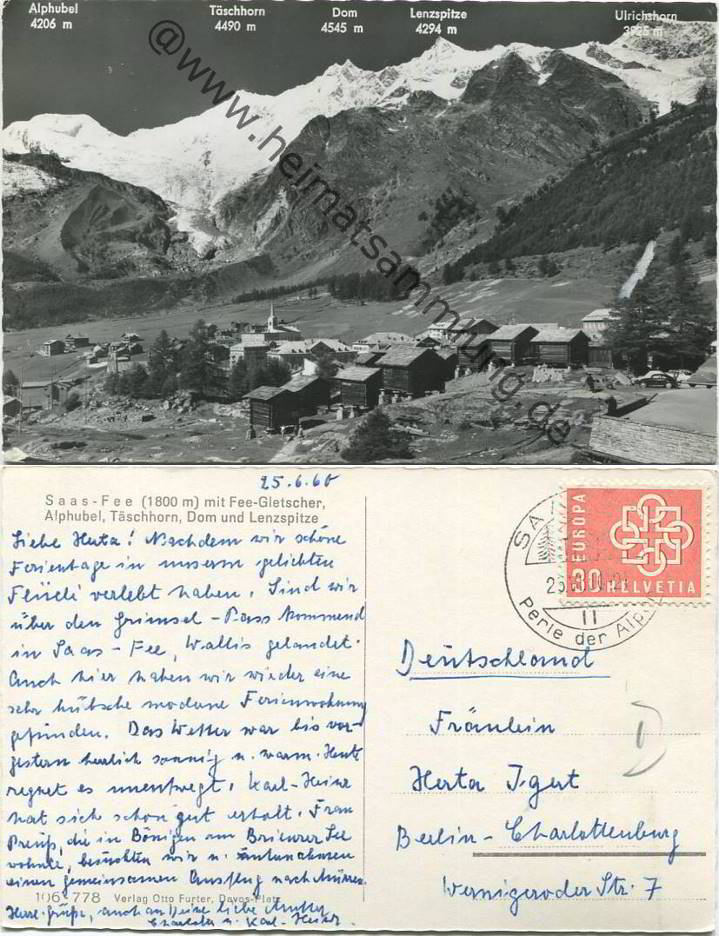 Alphubel
4206 m
Täschhorn
4490 m
Dom
4545 m
Lenzspitze
4294 m
Ulrichshorn
3925 m
@www.heimatsammlung.de
25.6.60
Saas-Fee (1800 m) mit Fee-Gletscher,
Alphubel, Täschhorn, Dom und Lenzspitze
Liebe Herta! Nachdem wir schöne
Ferientage in unserm geliebten
Flüeli verlebt haben. Sind wir
über den Grimsel-Pass kommend
in Saas-Fee, Wallis gelandet.
Auch hier haben wir wieder eine
sehr hübsche moderne Ferienwohnung
gefunden. Das Wetter war bis vor-
gestern herrlich sonnig u. warm. Heute
regnet es unentwegt. Karl-Heinz
hat sich schon gut erholt. Frau
Preuß, die in Bönigen am Brienzer See
wohnte, besuchten wir u. unternahmen
einen gemeinsamen Ausflug nach Mürren.
106-778 Verlag Otto Furter, Davos-Platz
Herzl. Grüße, auch an Deine liebe Mutter
u. Karl-Heinz
EUROPA
30 HELVETIA
SAA
Perle der Alp
Deutschland
Fräulein
Herta Igert
Berlin-Charlottenburg
Wernigeroder Str. 7